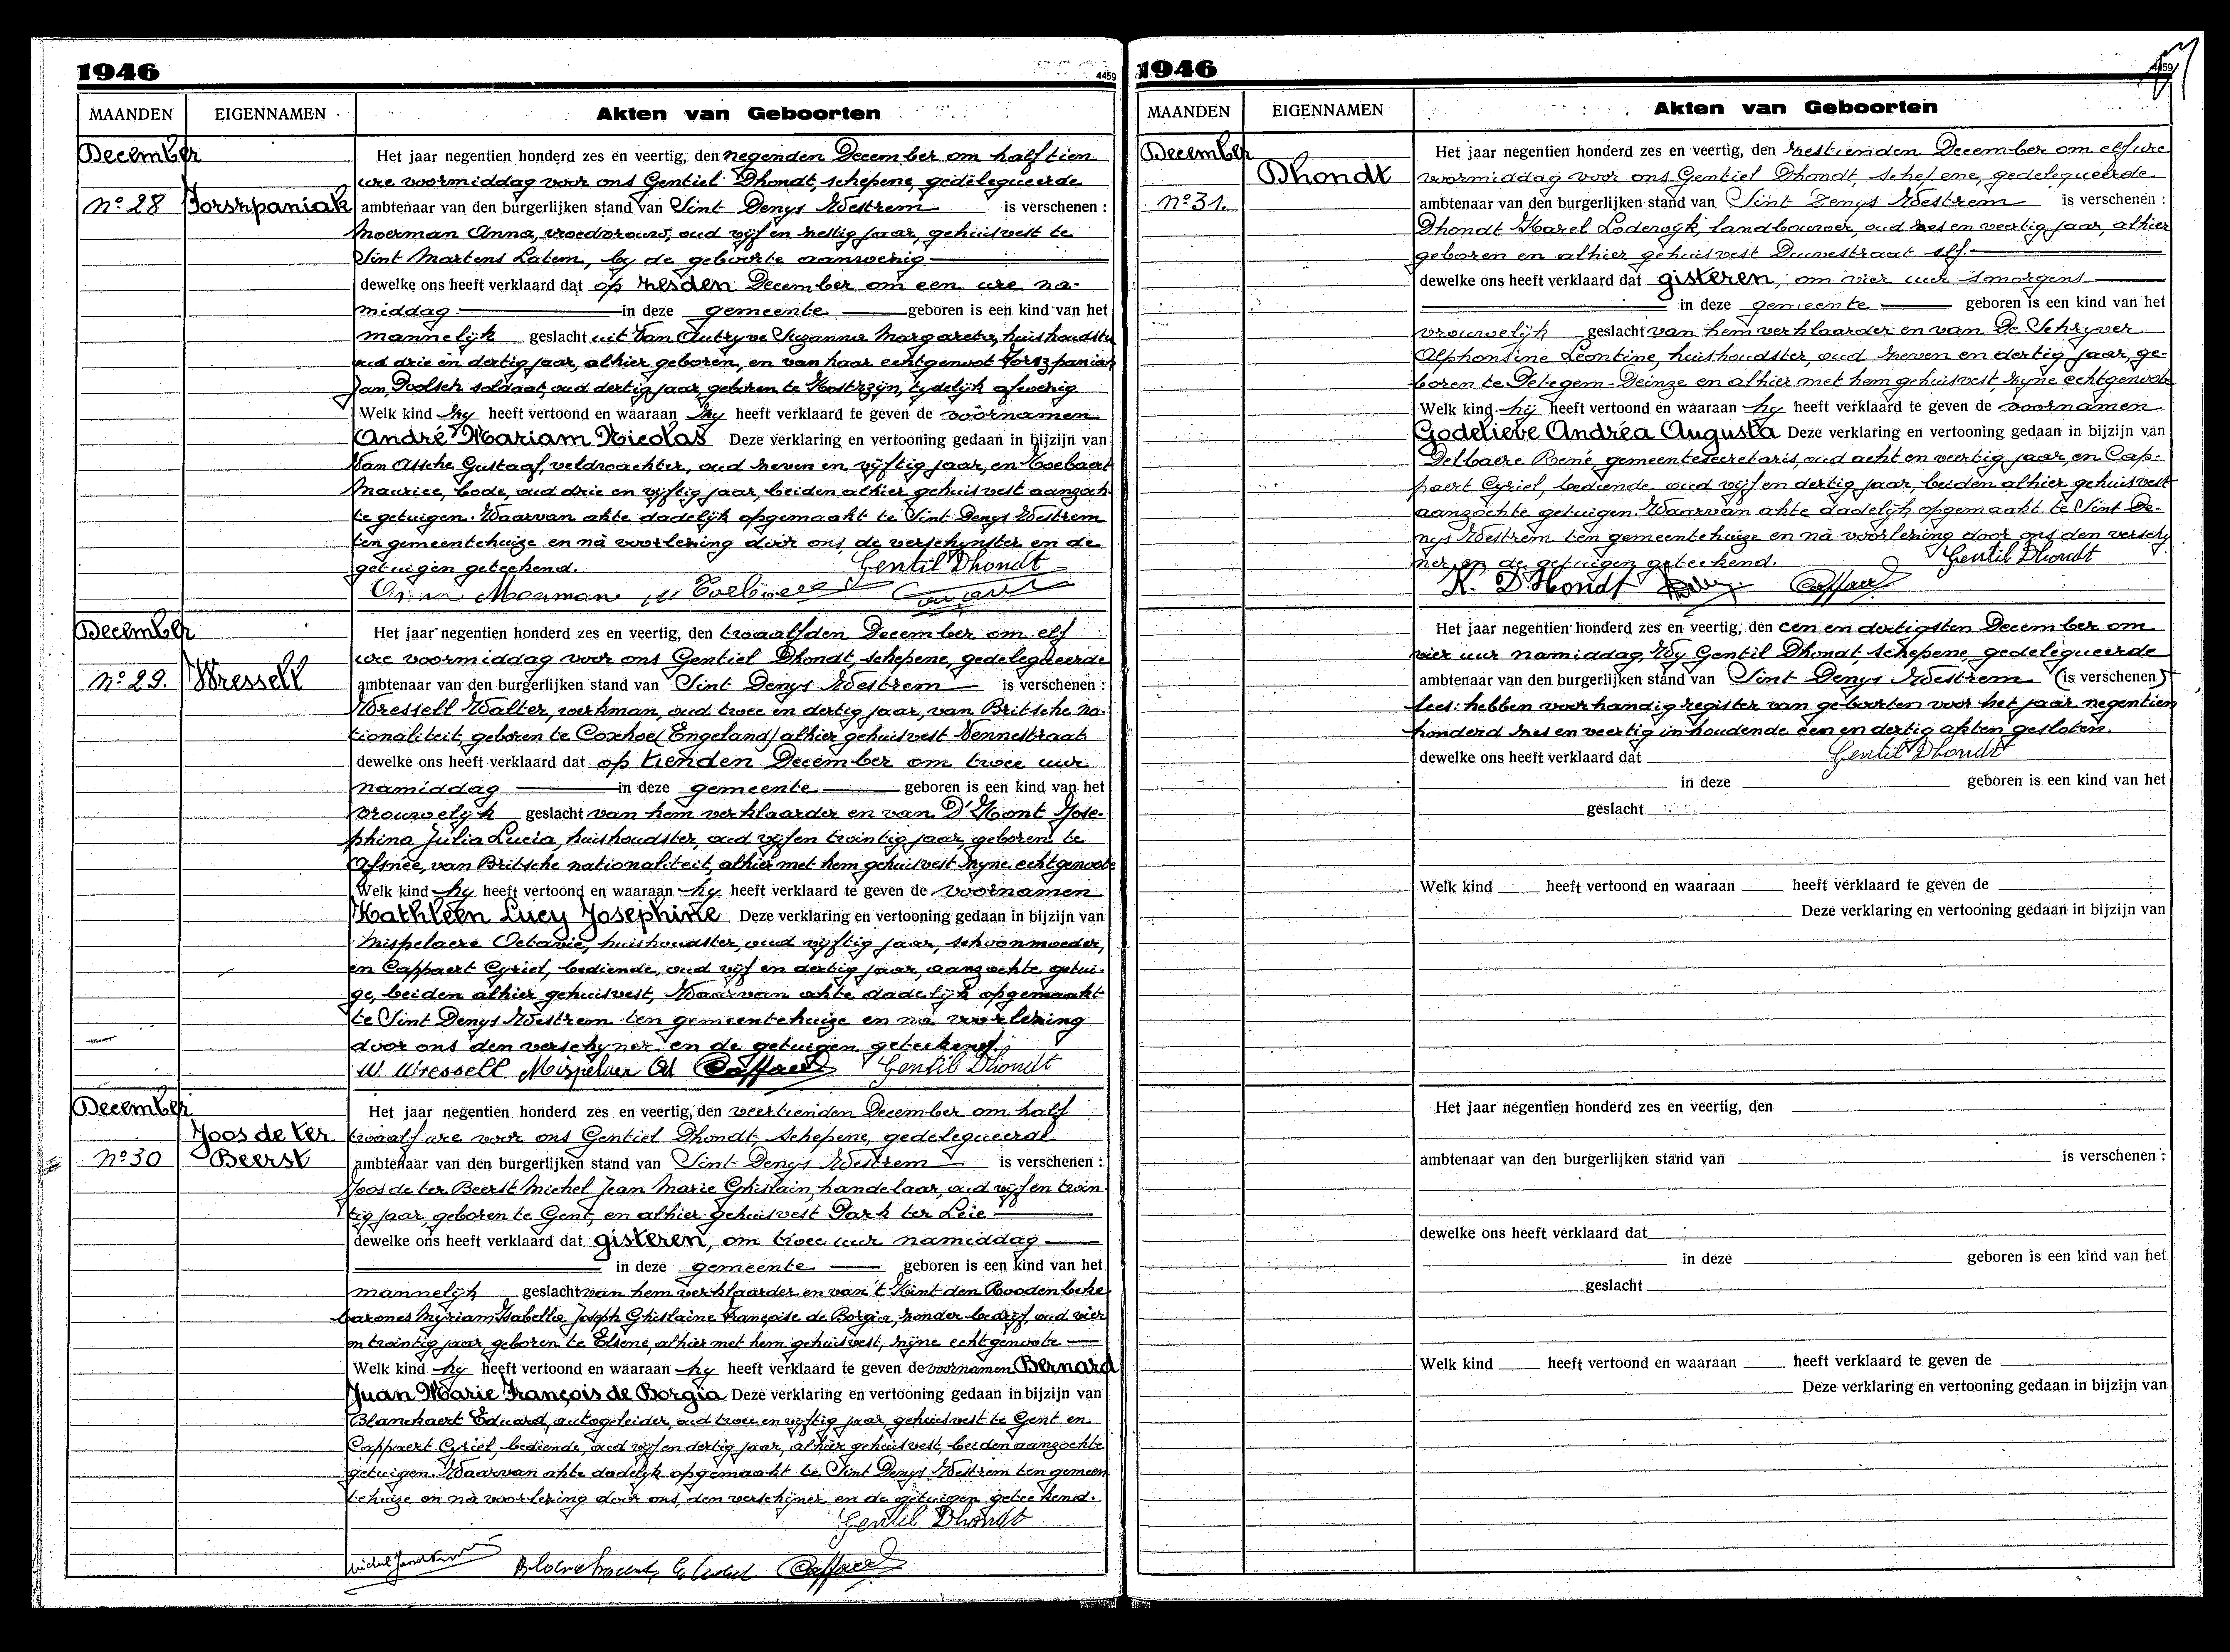 1946
4459
MAANDEN
EIGENNAMEN
Akten van Geboorten
December
Nº 28
Torszpaniak
Het jaar negentien honderd zes en veertig, den negenden December om half tien
ure voormiddag voor ons Gentiel Dhondt, schepene, gedelegueerde
ambtenaar van den burgerlijken stand van Sint Denys Westrem is verschenen :
Moerman Anna, vroedvrouw, oud vijf en zestig jaar, gehuisvest te
Sint Martens Latem, by de geboorte aanwezig
dewelke ons heeft verklaard dat op zesden December om een ure na-
middag in deze gemeente geboren is een kind van het
mannelijk geslacht uit Van Autryve Suzanna Margareta, huishoudster
oud drie en dertig jaar, alhier geboren, en van haar echtgenoot Torszpaniak
Jan, Poolsch soldaat, oud dertig jaar, geboren te Kostrzyn, tydelijk afwezig
Welk kind zy heeft vertoond en waaraan zy heeft verklaard te geven de voornamen
André Mariam Nicolas Deze verklaring en vertooning gedaan in bijzijn van
Van Assche Gustaaf, veldwachter, oud zeven en vijftig jaar, en Coebaert
Maurice, bode, oud drie en vijftig jaar, beiden alhier gehuisvest aanzoch-
te getuigen. Waarvan akte dadelijk opgemaakt te Sint Denys Westrem
ten gemeentehuize en nà voorlezing door ons, de verschynster en de
getuigen geteekend. Gentil Dhondt
Anna Moerman
December
Nº 29.
Wressell
Het jaar negentien honderd zes en veertig, den twaalfden December om elf
ure voormiddag voor ons Gentiel Dhondt, schepene, gedelegueerde
ambtenaar van den burgerlijken stand van Sint Denys Westrem is verschenen :
Wressell Walter, werkman, oud twee en dertig jaar, van Britsche na-
tionaliteit, geboren te Coxhoe (Engeland) alhier gehuisvest Vennestraat
dewelke ons heeft verklaard dat op tienden December om twee uur
namiddag in deze gemeente geboren is een kind van het
vrouwelijk geslacht van hem verklaarder en van D'Hont Jose-
phina Julia Lucia, huishoudster, oud vijf en twintig jaar, geboren te
Afsnee, van Britsche nationaliteit, alhier met hem gehuisvest zyne echtgenoote
Welk kind hy heeft vertoond en waaraan hy heeft verklaard te geven de voornamen
Kathleen Lucy Josephine Deze verklaring en vertooning gedaan in bijzijn van
Mispelaere Octavie, huishoudster, oud vijftig jaar, schoonmoeder,
en Cappaert Cyriel, bediende, oud vijf en dertig jaar, aanzochte getui-
ge, beiden alhier gehuisvest, Waarvan akte dadelijk opgemaakt
te Sint Denys Westrem ten gemeentehuize en nà voorlezing
door ons den verschyner en de getuigen geteekend.
W. Wressell Mispelaer Od Cappaert Gentil Dhondt
December
Nº 30
Joos de ter
Beerst
Het jaar negentien honderd zes en veertig, den veertienden December om half
twaalf ure voor ons Gentiel Dhondt, schepene, gedelegueerde
ambtenaar van den burgerlijken stand van Sint Denys Westrem is verschenen :
Joos de ter Beerst Michel Jean Marie Ghislain, handelaar, oud vijf en twin-
tig jaar, geboren te Gent, en alhier gehuisvest Park ter Leie
dewelke ons heeft verklaard dat gisteren, om twee uur namiddag
in deze gemeente geboren is een kind van het
mannelijk geslacht van hem verklaarder en van 't Kint den Roodenbeke
barones Myriam Isabelle Joseph Ghislaine Françoise de Borgia, zonder bedrijf, oud vier
en twintig jaar, geboren te Elsene, alhier met hem gehuisvest, zijne echtgenoote
Welk kind hy heeft vertoond en waaraan hy heeft verklaard te geven de voornamen Bernard
Juan Marie François de Borgia Deze verklaring en vertooning gedaan in bijzijn van
Blanckaert Eduard, autogeleider, oud twee en vijftig jaar, gehuisvest te Gent en
Cappaert Cyriel, bediende, oud vijf en dertig jaar, alhier gehuisvest, beiden aanzochte
getuigen. Waarvan akte dadelijk opgemaakt te Sint Denys Westrem ten gemeen-
tehuize en nà voorlezing door ons, den verschijner en de getuigen geteekend.
Gentil Dhondt
Cappaert
1946
4459
MAANDEN
EIGENNAMEN
Akten van Geboorten
December
Nº 31.
Dhondt
Het jaar negentien honderd zes en veertig, den zestienden December om elf ure
voormiddag voor ons Gentiel Dhondt, schepene, gedelegueerde
ambtenaar van den burgerlijken stand van Sint Denys Westrem is verschenen :
Dhondt Karel Lodewijk, landbouwer, oud zes en veertig jaar, alhier
geboren en alhier gehuisvest Duivestraat elf.
dewelke ons heeft verklaard dat gisteren, om vier uur 's morgens
in deze gemeente geboren is een kind van het
vrouwelijk geslacht van hem verklaarder en van De Schryver
Alphonsine Leontine, huishoudster, oud zeven en dertig jaar, ge-
boren te Petegem-Deinze en alhier met hem gehuisvest, zyne echtgenoote
Welk kind hij heeft vertoond en waaraan hy heeft verklaard te geven de voornamen
Godelieve Andréa Augusta Deze verklaring en vertooning gedaan in bijzijn van
Delbaere René, gemeentesecretaris, oud acht en veertig jaar, en Cap-
paert Cyriel, bediende oud vijf en dertig jaar, beiden alhier gehuisvest
aanzochte getuigen. Waarvan akte dadelijk opgemaakt te Sint De-
nys Westrem ten gemeentehuize en nà voorlezing door ons den verschy-
ner en de getuigen geteekend. Gentil Dhondt
K. D'Hondt Cappaert
Het jaar negentien honderd zes en veertig, den een en dertigsten December om
vier uur namiddag, Wy Gentil Dhondt, schepene, gedelegueerde
ambtenaar van den burgerlijken stand van Sint Denys Westrem (is verschenen)
lees: hebben voorhandig register van geboorten voor het jaar negentien
honderd zes en veertig inhoudende een en dertig akten gesloten.
dewelke ons heeft verklaard dat Gentil Dhondt
in deze geboren is een kind van het
geslacht
Welk kind heeft vertoond en waaraan heeft verklaard te geven de
Deze verklaring en vertooning gedaan in bijzijn van
Het jaar negentien honderd zes en veertig, den
ambtenaar van den burgerlijken stand van is verschenen :
dewelke ons heeft verklaard dat
in deze geboren is een kind van het
geslacht
Welk kind heeft vertoond en waaraan heeft verklaard te geven de
Deze verklaring en vertooning gedaan in bijzijn van